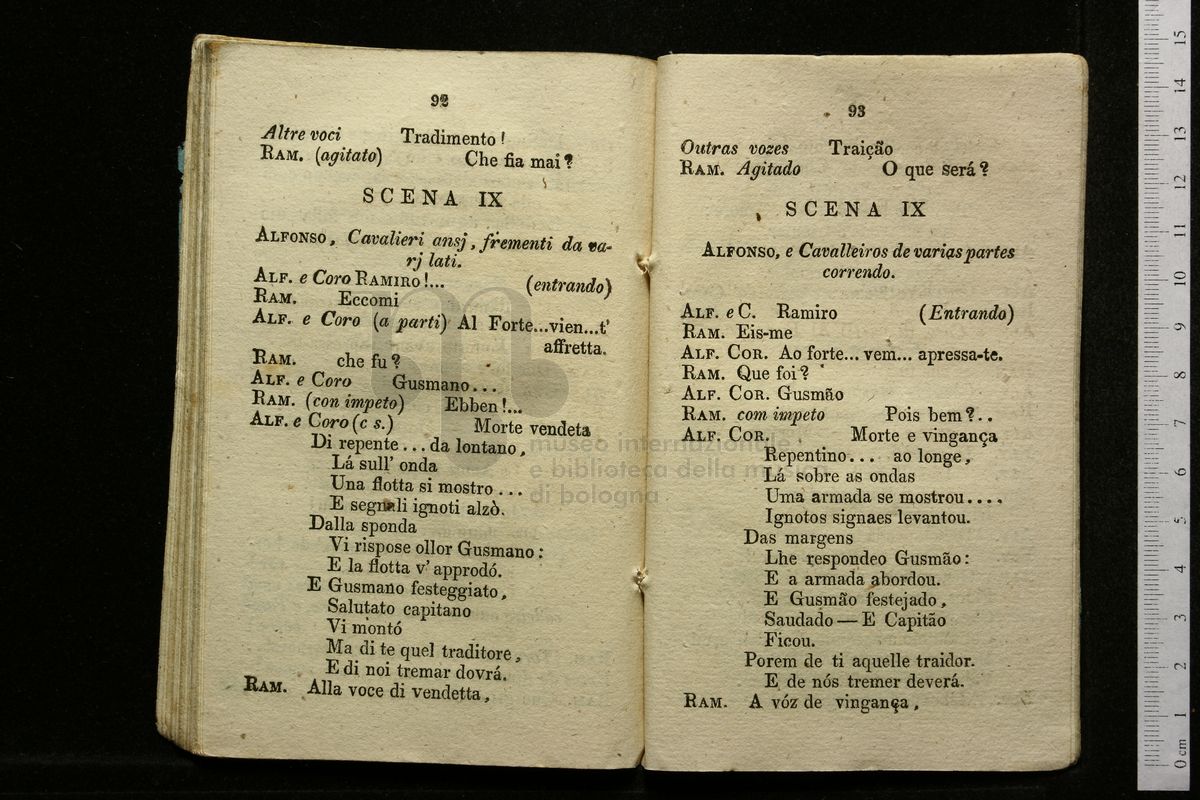 92
Altre voci Tradimento!
RAM. (agitato) Che fia mai?
SCENA IX
ALFONSO, Cavalieri ansj, frementi da va-
rj lati.
ALF. e Coro RAMIRO!... (entrando)
RAM. Eccomi
ALF. e Coro (a parti) Al Forte...vien...t'
affretta.
RAM. che fu?
ALF. e Coro Gusmano...
RAM. (con impeto) Ebben!...
ALF. e Coro (c s.) Morte vendeta
Di repente... da lontano,
Lá sull' onda
Una flotta si mostro...
E segnali ignoti alzò.
Dalla sponda
Vi rispose ollor Gusmano:
E la flotta v' approdó.
E Gusmano festeggiato,
Salutato capitano
Vi montó
Ma di te quel traditore,
E di noi tremar dovrá.
RAM. Alla voce di vendetta,
93
Outras vozes Traição
RAM. Agitado O que será?
SCENA IX
ALFONSO, e Cavalleiros de varias partes
correndo.
ALF. e C. Ramiro (Entrando)
RAM. Eis-me
ALF. COR. Ao forte... vem... apressa-te.
RAM. Que foi?
ALF. COR. Gusmão
RAM. com impeto Pois bem?..
ALF. COR. Morte e vingança
Repentino... ao longe,
Lá sobre as ondas
Uma armada se mostrou....
Ignotos signaes levantou.
Das margens
Lhe respondeo Gusmão:
E a armada abordou.
E Gusmão festejado,
Saudado — E Capitão
Ficou.
Porem de ti aquelle traidor.
E de nós tremer deverá.
RAM. A vóz de vingança,
museo internazionale
e biblioteca della musica
di bologna
0 cm 1 2 3 4 5 6 7 8 9 10 11 12 13 14 15